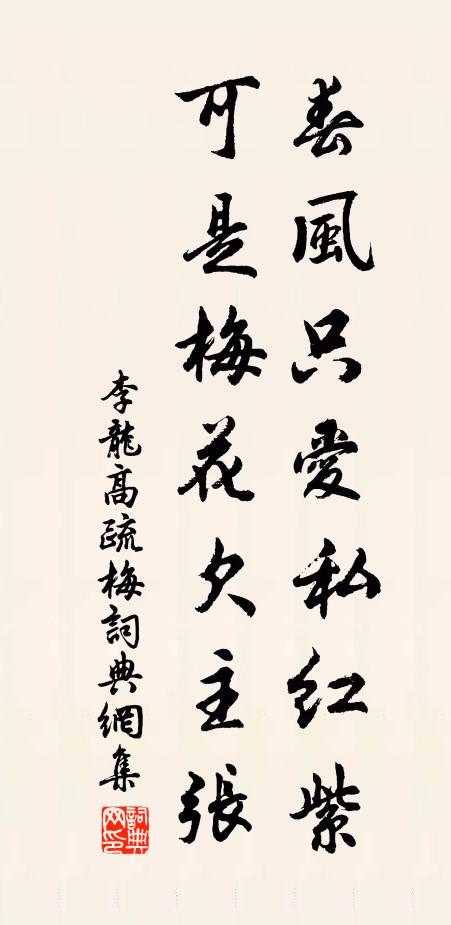 春風只愛私紅紫
可是梅花欠主張
李龍高疏梅詞典網集
詞典網印